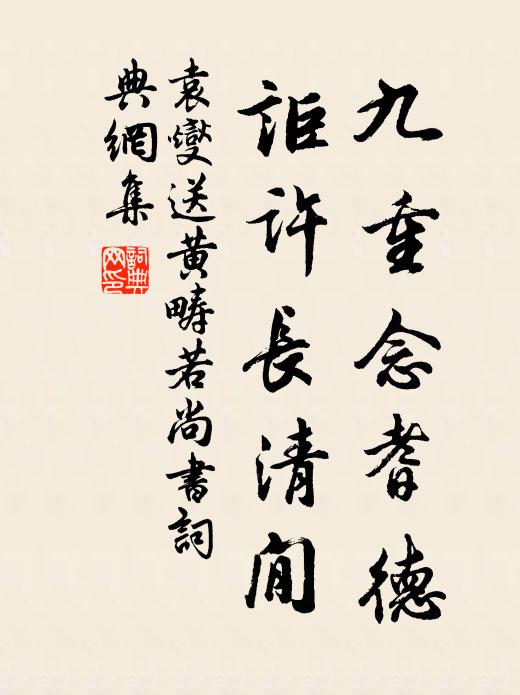 九重念耆德
詎許長清閒
袁燮送黄疇若尚書詞
典網集
詞典
网印